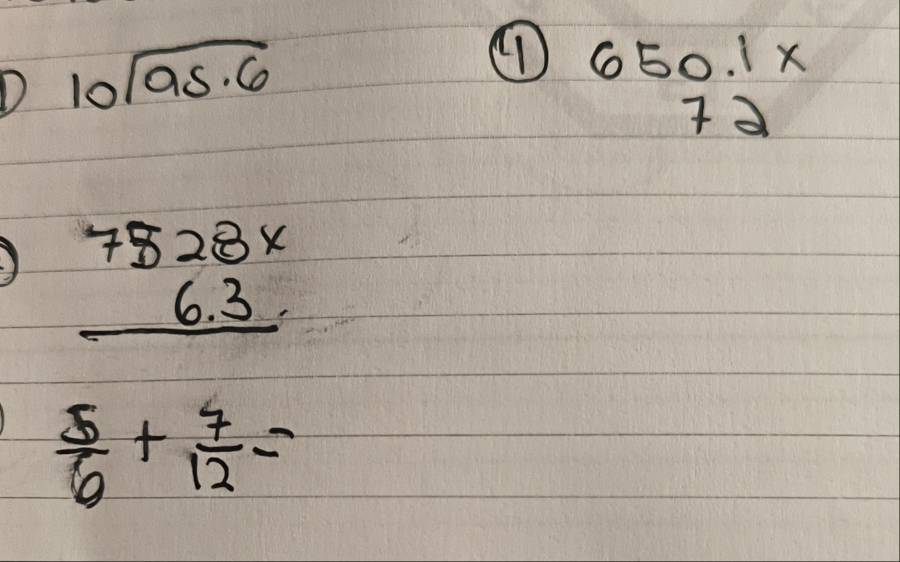 1) 10)95.6
④ 650.1 x
72
7528 x
6.3
5/6 + 7/12 =